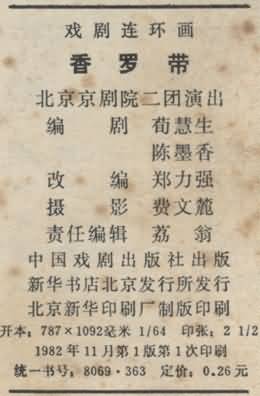 戏剧连环画
香罗带
北京京剧院二团演出
编 剧 荀慧生
陈墨香
改 编 郑力强
摄 影 费文麓
责任编辑 荔 翁
中国戏剧出版社出版
新华书店北京发行所发行
北京新华印刷厂制版印刷
开本：787×1092毫米 1/64 印张：2 1/2
1982年11月第1版第1次印刷
统一书号：8069·363 定价：0.26元